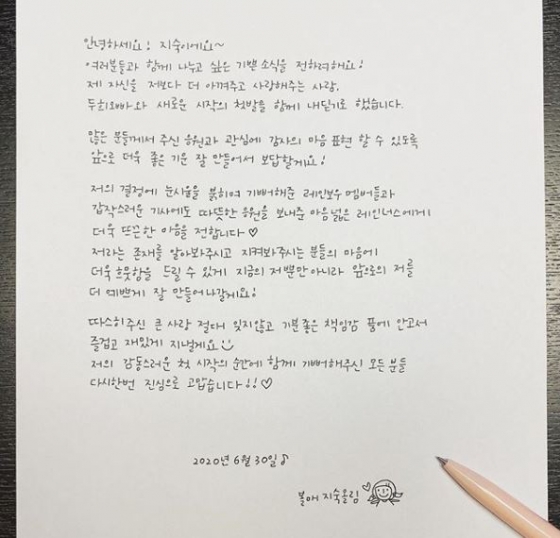 안녕하세요! 지숙이에요~
여러분들과 함께 나누고 싶은 기쁜 소식을 전하려해요!
제 자신을 저보다 더 아껴주고 사랑해주는 사람,
두희오빠와 새로운 시작의 첫발을 함께 내딛기로 했습니다.
많은 분들께서 주신 응원과 관심에 감사의 마음 표현 할 수 있도록
앞으로 더욱 좋은 기운 잘 만들어서 보답할게요!
저의 결정에 눈시울을 붉히며 기뻐해준 레인보우 멤버들과
갑작스러운 기사에도 따뜻한 응원을 보내준 마음넓은 레인너스에게
더욱 뜨끈한 마음을 전합니다♡
저라는 존재를 알아봐주시고 지켜봐주시는 분들의 마음에
더욱 흐뭇함을 드릴 수 있게 지금의 저뿐만아니라 앞으로의 저를
더 예쁘게 잘 만들어나갈게요!
따스히주신 큰 사랑 절대 잊지않고 기분좋은 책임감 품에 안고서
즐겁고 재밌게 지낼게요
저의 감동스러운 첫 시작의 순간에 함께 기뻐해주신 모든분들
다시한번 진심으로 고맙습니다!!♡
2020년 6월 30일♪
볼매 지숙올림♡